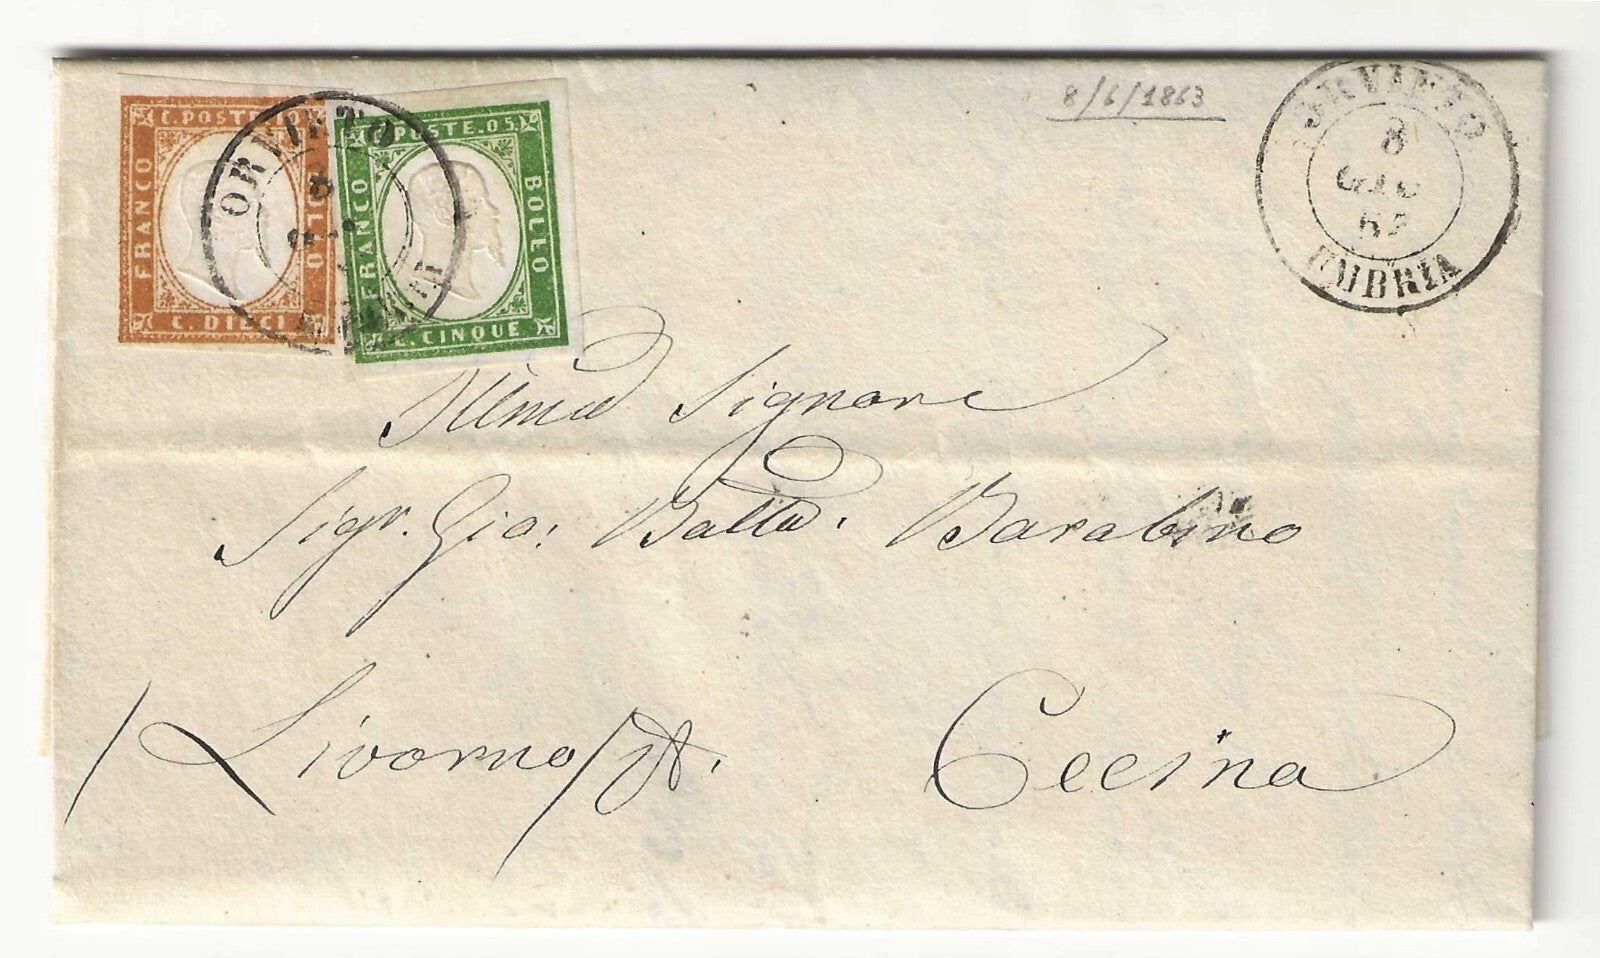 8/6/1863
ORVIETO
8
GIU
63
UMBRIA
C. POSTE. 10
FRANCO
BOLLO
C. DIECI
C. POSTE. 05
FRANCO
BOLLO
C. CINQUE
ORVIETO
8
UMBRIA
Illmo Signore
Sigr. Gio: Batta. Barabino
/Livorno/ Cecina